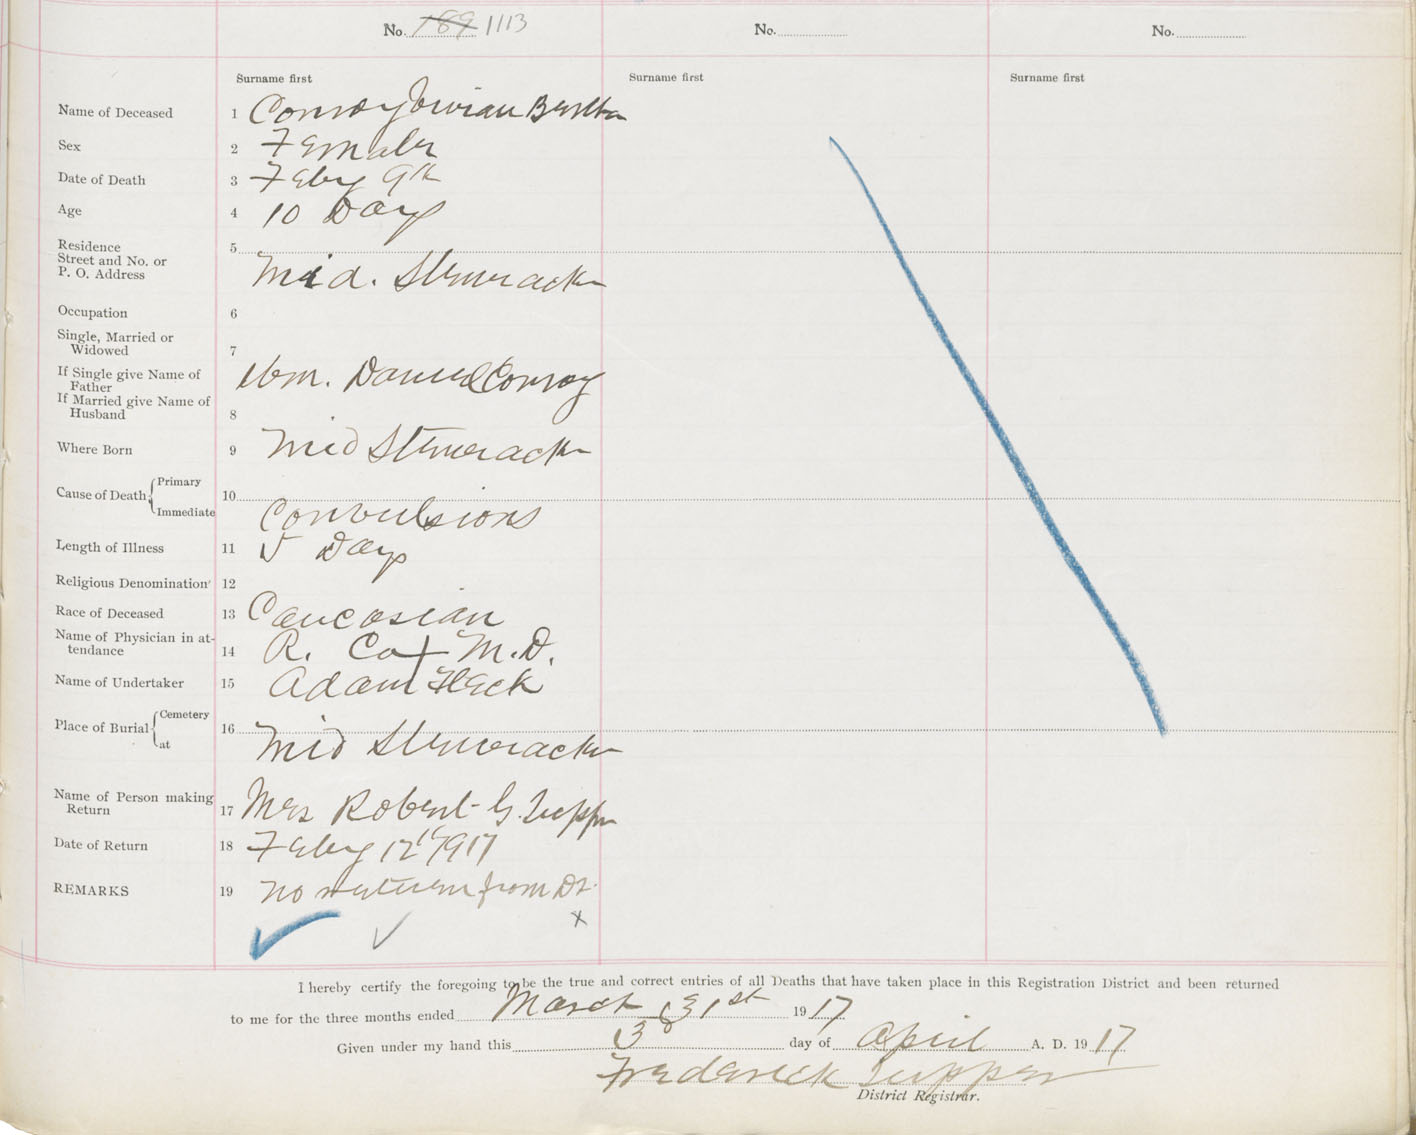 No. 189 1113 No. No.
Surname first Surname first Surname first
Name of Deceased 1 Conroy Bertha
Sex 2 Female
Date of Death 3 Feby 9th
Age 4 10 Days
Residence 5
Street and No. or
P. O. Address Mid. Stewiacke
Occupation 6
Single, Married or
Widowed 7
If Single give Name of
Father Wm. Daniel Conroy
If Married give Name of
Husband 8
Where Born 9 Mid Stewiacke
Cause of Death Primary 10
Immediate Convulsions
Length of Illness 11 5 Days
Religious Denomination 12
Race of Deceased 13 Caucasian
Name of Physician in at-
tendance 14 R. Cox M.D.
Name of Undertaker 15 Adam Fleck
Place of Burial Cemetery 16
at Mid Stewiacke
Name of Person making
Return 17 Mrs Robert G. Tupper
Date of Return 18 Feby 12th 1917
REMARKS 19 No return from Dr.
x
I hereby certify the foregoing to be the true and correct entries of all Deaths that have taken place in this Registration District and been returned
to me for the three months ended March 31st 1917
Given under my hand this 3d day of April A. D. 1917
Frederick Tupper
District Registrar.